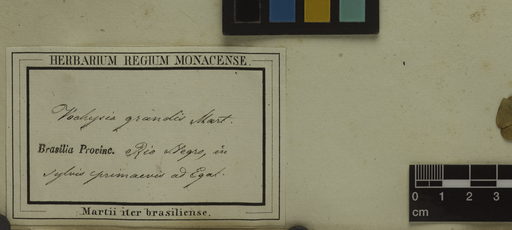 HERBARIUM REGIUM MONACENSE.
Vochysia grandis Mart.
Brasilia Provinc. Rio Negro, in
sylvis primaevis ad Ega.
Martii iter brasiliense.
0 1 2 3 4
cm